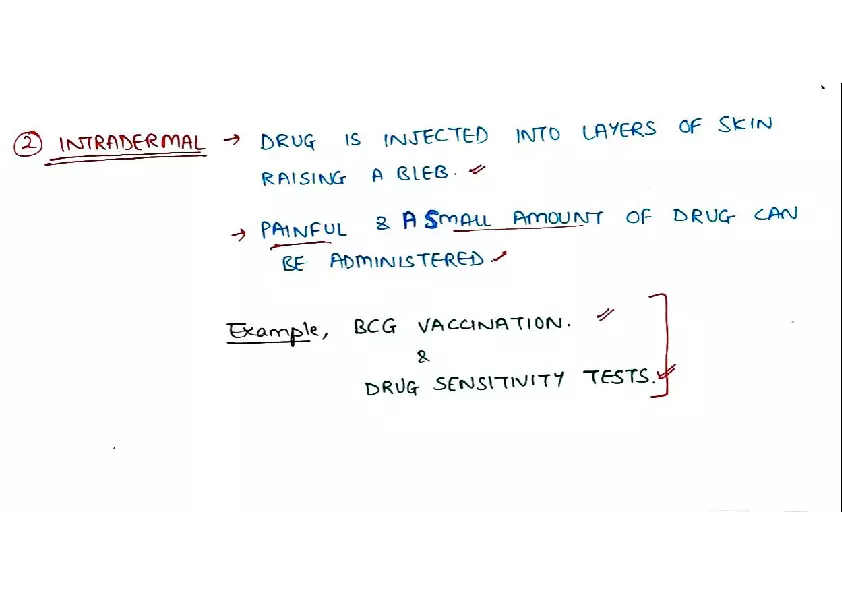 ② INTRADERMAL → DRUG IS INJECTED INTO LAYERS OF SKIN
RAISING A BLEB.
→ PAINFUL & A SMALL AMOUNT OF DRUG CAN
BE ADMINISTERED
Example, BCG VACCINATION.
&
DRUG SENSITIVITY TESTS.